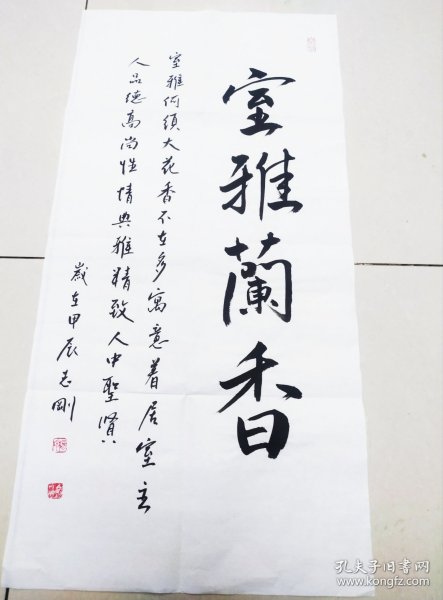 室雅蘭香
室雅何須大花香不在多寓意着居室主
人品德高尚性情典雅精致人中聖賢
歲在甲辰志剛
孔夫子旧书网
www.kongfz.com